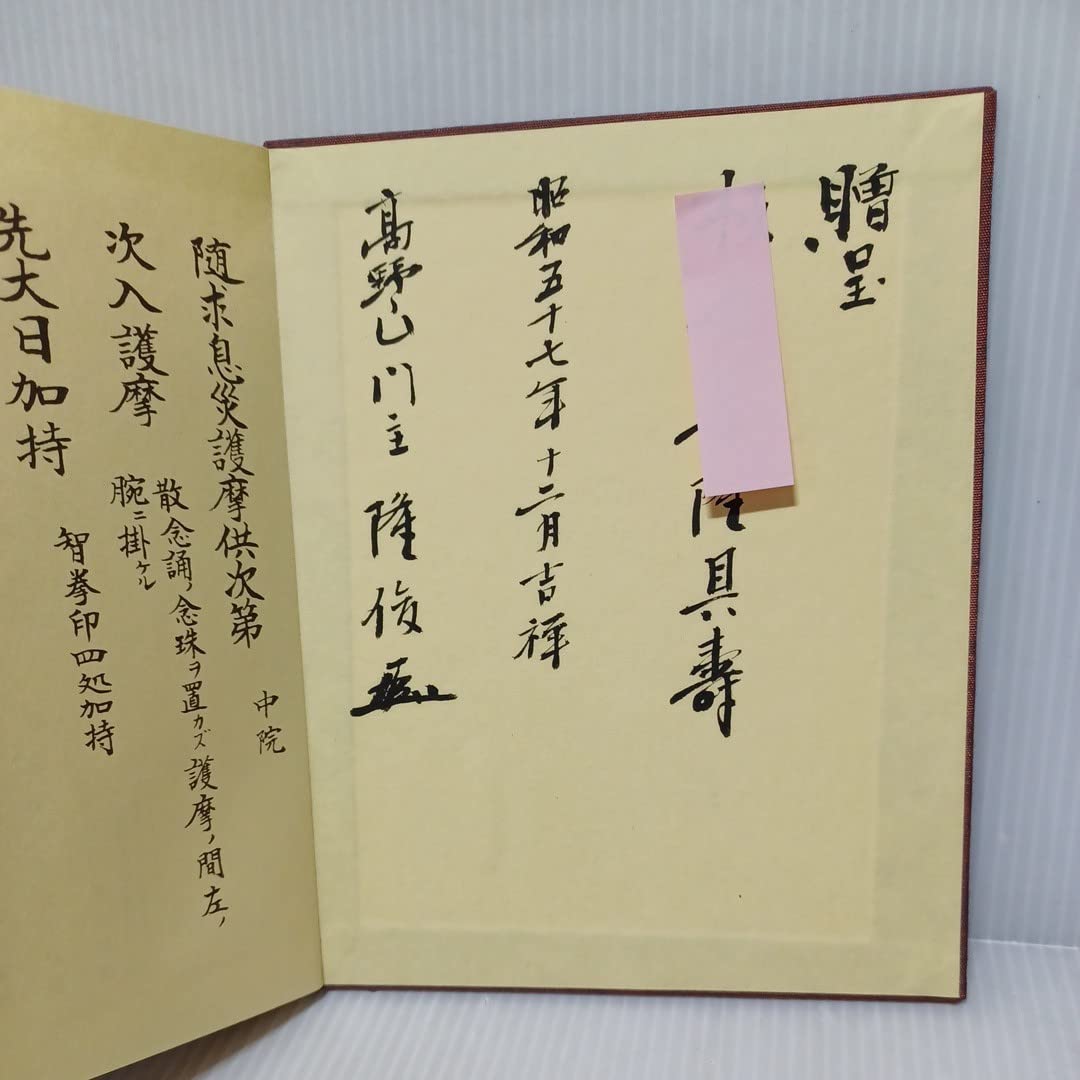 贈呈
隆具壽
昭和五十七年十二月吉祥
高野山門主 隆俊
随求息災護摩供次第 中院
次入護摩 散念誦ノ念珠ヲ置カズ護摩ノ間左ノ
腕ニ掛ケル
先大日加持 智拳印四処加持